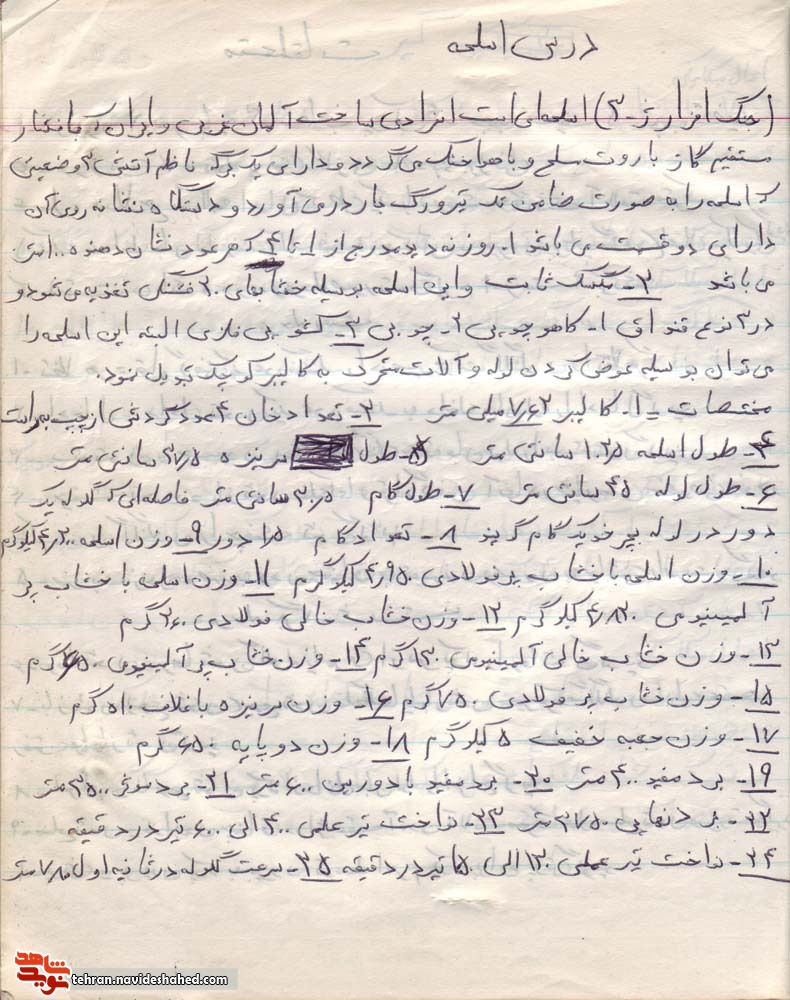 درس اسلحه
(جنگ افزار ژ-۳) اسلحه‌ای است انفرادی ساخت آلمان غربی و ایران که با فشار
مستقیم گاز باروت مسلح و با هوا خنک می گردد و دارای یک برگه ناظم آتش ۳ وضعیتی
که اسلحه را به صورت ضامن تک تیر و رگبار در می آورد و دستگاه نشانه روی آن
دارای دو قسمت می باشد ۱. روزنه دید مدرج از ۱ تا ۴ که هر عدد نشان دهنده ۱۰۰ متر
می باشد ۲- مگسک ثابت و این اسلحه بوسیله خشابهای ۲۰ فشنگی تغذیه می شود و
در ۳ نوع قنداق ۱- کاهو چوبی ۲- چوبی ۳- کشویی فلزی البته این اسلحه را
می توان بوسیله عوض کردن لوله و آلات متحرک به کالیبر کوچک تبدیل نمود.
مختصات - ۱- کالیبر ۷/۶۲ میلی متر ۲- تعداد خان ۴ عدد گردش از چپ به راست
۴- طول اسلحه ۱۰۲/۵ سانتی متر ۵- طول سر نیزه ۳۷/۵ سانتی متر
۶- طول لوله ۴۵ سانتی متر ۷- طول گام ۳۰/۵ سانتی متر فاصله‌ای که گلوله یک
دور در لوله بچرخد یک گام گویند ۸- تعداد گام ۱/۵ دور ۹- وزن اسلحه ۴/۲۰۰ کیلوگرم
۱۰- وزن اسلحه با خشاب پر فولادی ۴/۹۵۰ کیلوگرم ۱۱- وزن اسلحه با خشاب پر
آلمینیومی ۴/۸۲۰ کیلوگرم ۱۲- وزن خشاب خالی فولادی ۲۶۰ گرم
۱۳- وزن خشاب خالی آلمینیومی ۱۳۰ گرم ۱۴- وزن خشاب پر آلمینیومی ۶۵۰ گرم
۱۵- وزن خشاب پر فولادی ۷۵۰ گرم ۱۶- وزن سر نیزه با غلاف ۵۱۰ گرم
۱۷- وزن جعبه خفیف ۵ کیلوگرم ۱۸- وزن دو پایه ۶۵۰ گرم
۱۹- برد مفید ۴۰۰ متر ۲۰- برد مفید با دوربین ۶۰۰ متر ۲۱- برد موثر ۲۵۰۰ متر
۲۲- برد نهایی ۳۷۵۰ متر ۲۳- نواخت تیر علمی ۴۰۰ الی ۶۰۰ تیر در دقیقه
۲۴- نواخت تیر عملی ۱۲۰ الی ۱۵۰ تیر در دقیقه ۲۵- سرعت گلوله در ثانیه اول ۷۸۰ متر
شاهد نوید tehran.navideshahed.com